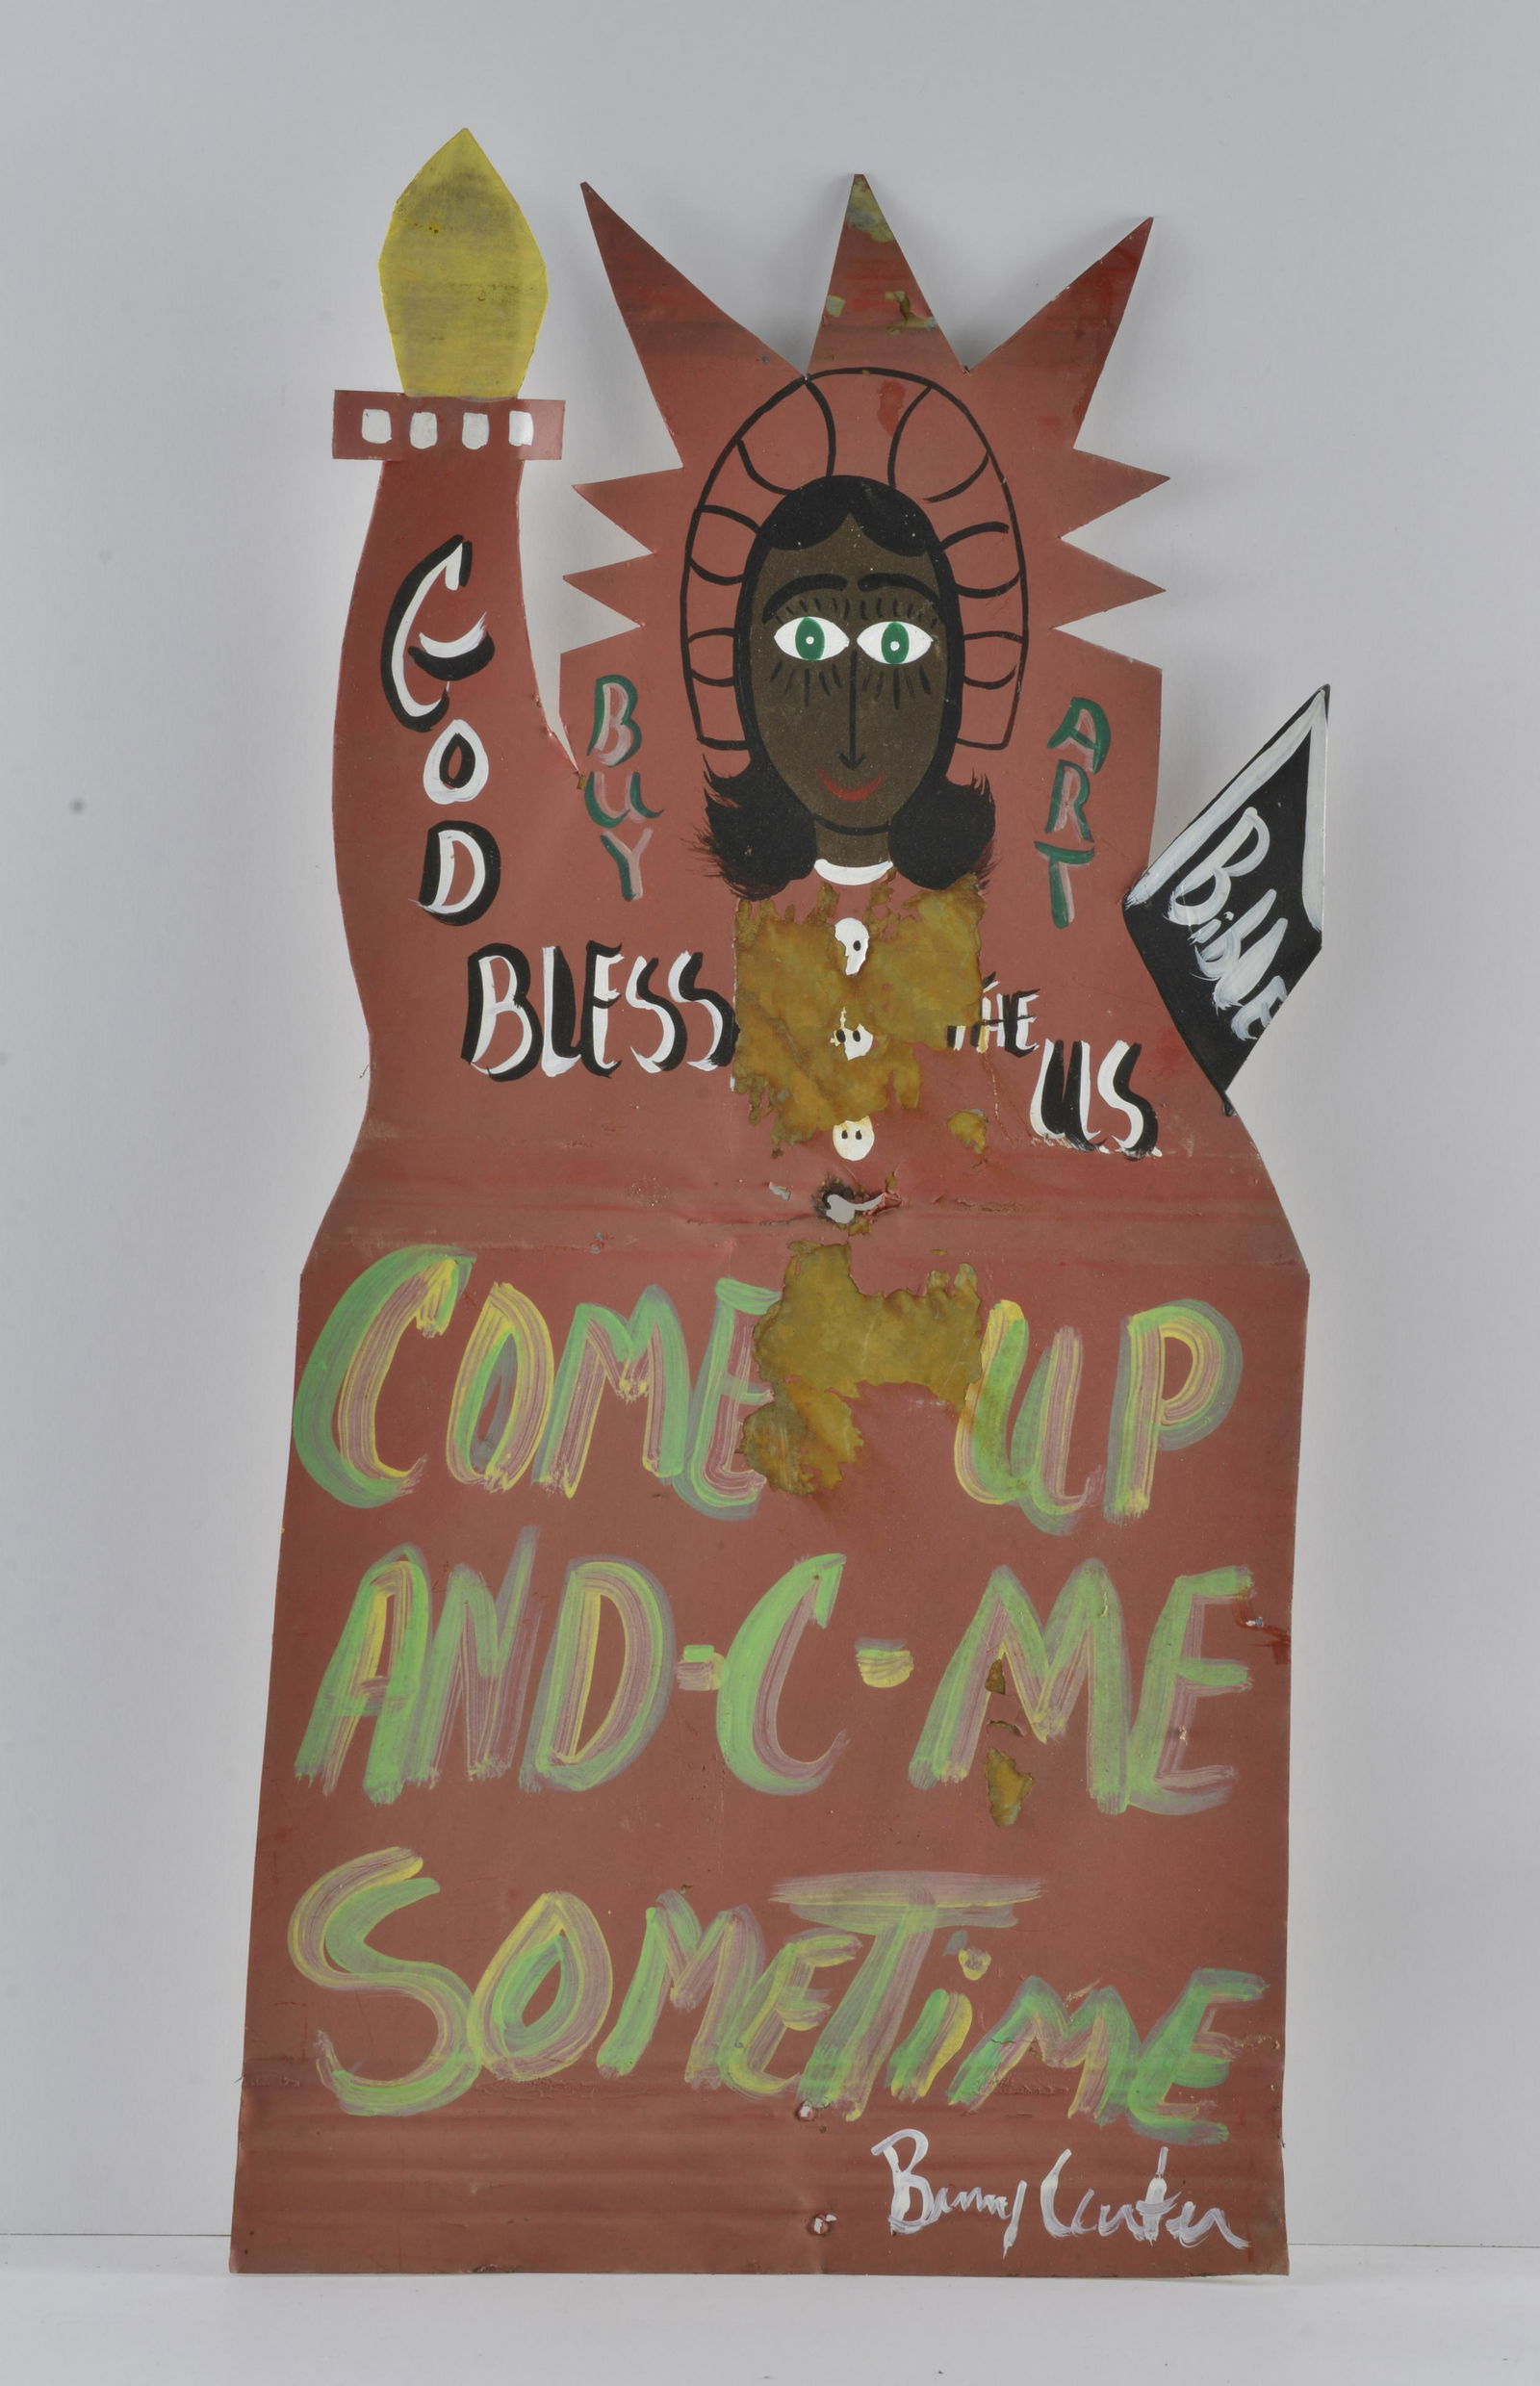 GOD
BLESS THE U.S.
BUY ART
Bible
COME UP
AND-C-ME
SOMETiME
Benny Carter